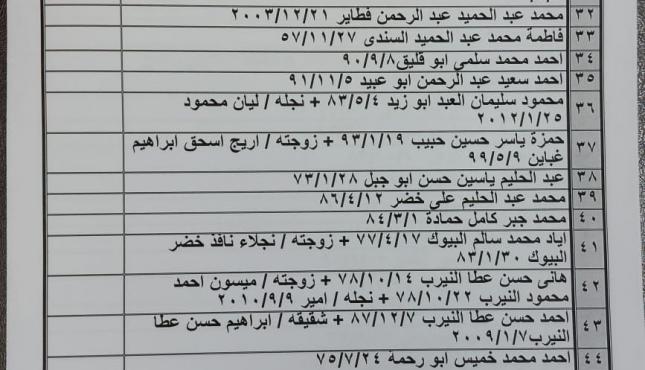 ٣٢ محمد عبد الحميد عبد الرحمن فطاير ٢٠٠٣/١٢/٢١
٣٣ فاطمة محمد عبد الحميد السندى ٥٧/١١/٢٧
٣٤ احمد محمد سلمي ابو قليق ٩٠/٩/٨
٣٥ احمد سعيد عبد الرحمن ابو عبيد ٩١/١١/٥
٣٦ محمود سليمان العبد ابو زيد ٨٣/٥/٤ + نجله / ليان محمود
٢٠١٢/١/٢٥
٣٧ حمزة ياسر حسين حبيب ٩٣/١/١٩ + زوجته / اريج اسحق ابراهيم
غباين ٩٩/٥/٩
٣٨ عبد الحليم ياسين حسن ابو جبل ٧٣/١/٢٨
٣٩ محمد عبد الحليم علي خضر ٨٦/٤/١٢
٤٠ محمد جبر كامل حمادة ٨٤/٣/١
٤١ اياد محمد سالم البيوك ٧٧/٤/١٧ + زوجته / نجلاء نافذ خضر
البيوك ٨٣/١/٣٠
٤٢ هانى حسن عطا النيرب ٧٨/١٠/١٤ + زوجته / ميسون احمد
محمود النيرب ٧٨/١٠/٢٢ + نجله / امير ٢٠١٠/٩/٩
٤٣ احمد حسن عطا النيرب ٨٧/١٢/٧ + شقيقه / ابراهيم حسن عطا
النيرب ٢٠٠٩/١/٧
٤٤ احمد محمد خميس ابو رحمة ٧٥/٧/٢٤